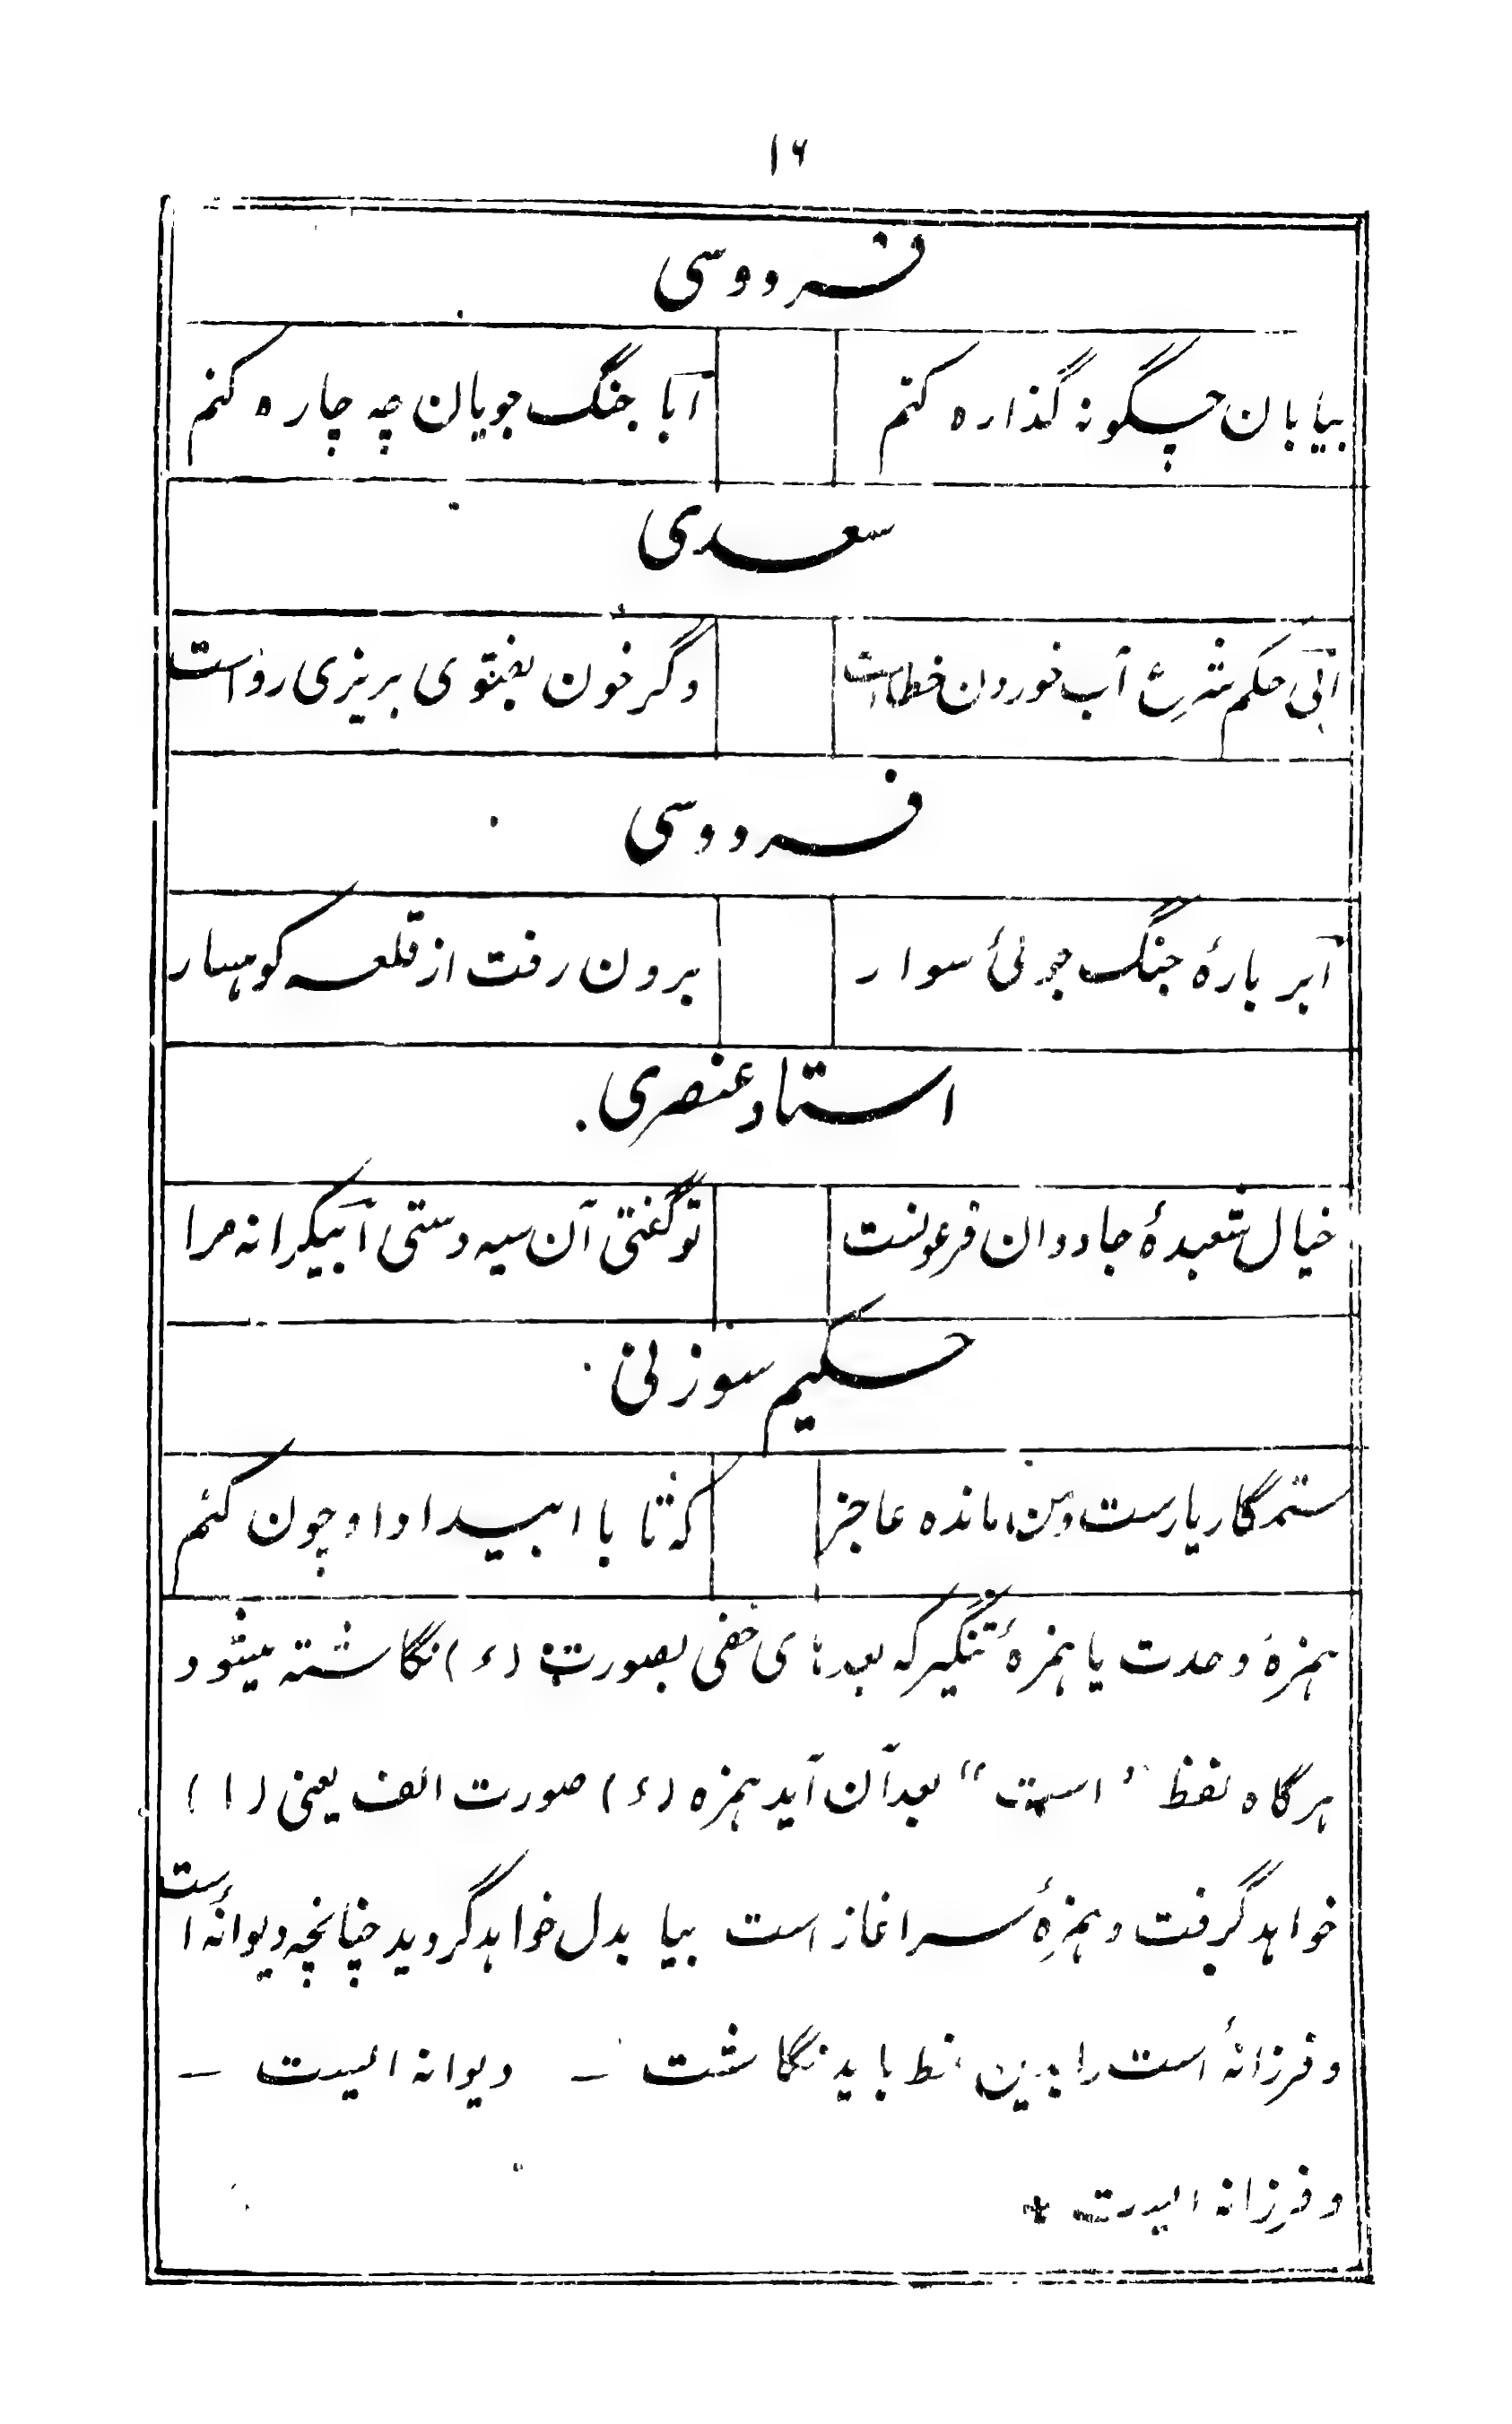 ۱۶
فردوسی
بیابان چگونه گذاره کنم اَبا جنگ جویان چه چاره کنم
سعدی
اَبی حکم شرع آب خوردن خطا است وگر خون بفتوی بریزی رواست
فردوسی
اَبر بارهٔ جنگ جوئی سوار برون رفت از قلعه کوهسار
استاد عنصری
خیال شعبدهٔ جادوان فرعونست تو گفتی آن سیه دستی اَبیکرانه مرا
حکیم سوزنی
ستمگار یارست ومن مانده عاجز که تا با ابیداد او چون کنم
همزه وحدت یا همزهٔ تنکیر که بعد های خفی بصورت (ء) نگاشته میشود
هرگاه لفظ "است" بعد آن آید همزه (ء) صورت الف یعنی (ا)
خواهد گرفت و همزهٔ سرآغاز است بیا بدل خواهد گردید چنانچه دیوانهٔ است
و فرزانهٔ است را بدین نمط باید نگاشت – دیوانه ایست –
و فرزانه ایست +